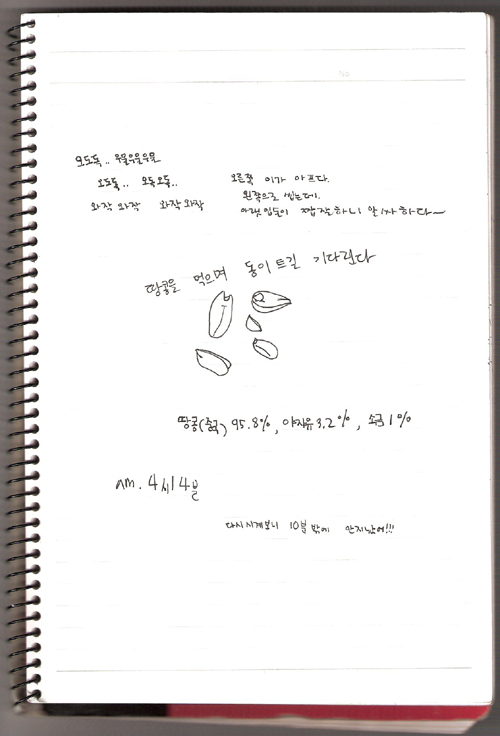 No
오도독.. 우물우물우물
오도독.. 오독오독..
와작와작 와작와작
오른쪽 이가 아프다.
왼쪽으로 씹는데.
아랫입술이 짭짤하니 알싸하다~
땅콩을 먹으며 동이트길 기다린다
땅콩(중국) 95.8%, 야자유 3.2%, 소금 1%
am. 4시 4분
다시 시계보니 10분 밖에 안지났어!!!